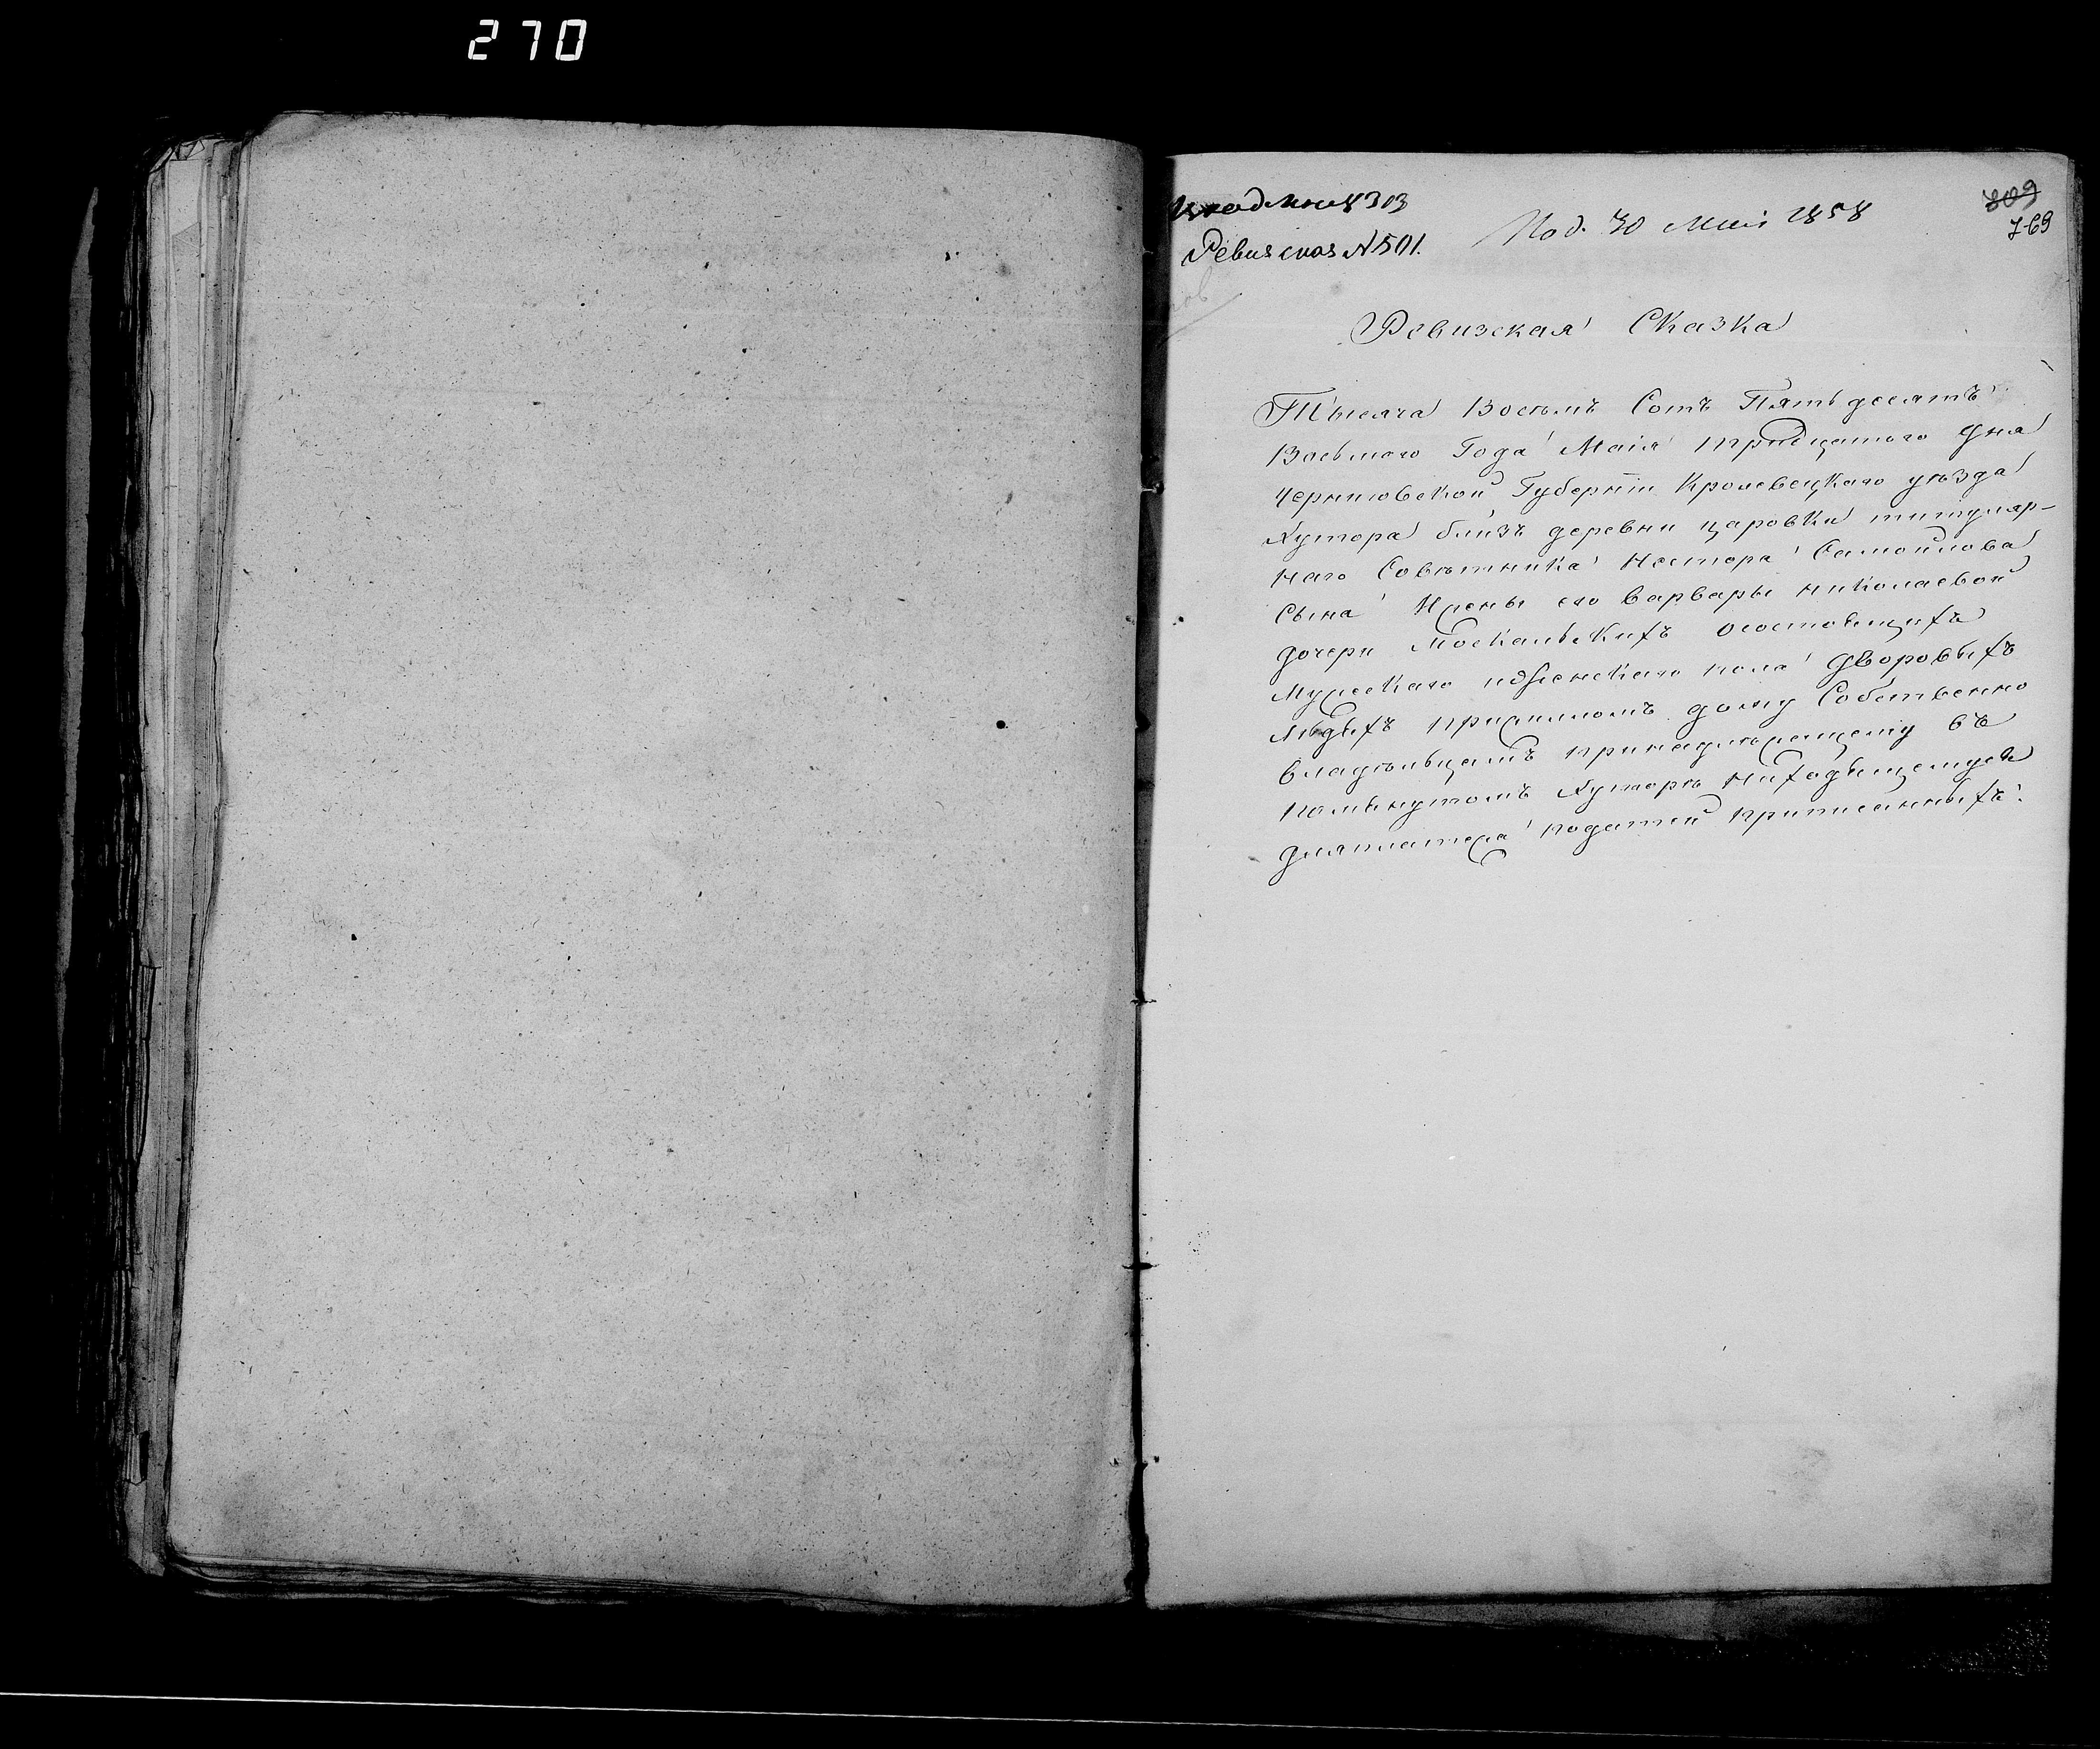 270
809
769
Под. 30 Маія 1858
Ревиз сказ №501.
Ревизская Сказка
Тысяча Восемь Сотъ Пятьдесятъ
Восьмого Года Маія тридцатого дня
Черниговской Губерніи Кролевецкаго уѣзда
Хутора близъ деревни царовки титуляр-
наго Совѣтника Нестора Самойлова
Сына Жены его Варвары николаевой
дочери Москальскихъ осостовщихъ
Мужескаго иженскаго пола дворовыхъ
людяхъ прижиломъ дому Собственно
владѣльцамъ принадлежащему въ
помянутомъ Хуторѣ находящемуся
дляплатежа податей приписанныхъ.